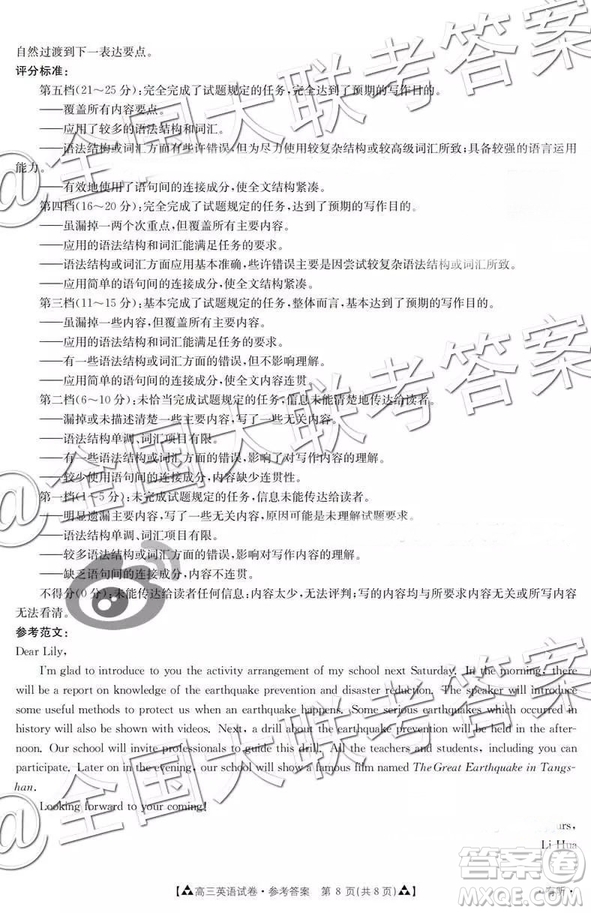 自然过渡到下一表达要点。
评分标准:
第五档(21～25 分):完全完成了试题规定的任务,完全达到了预期的写作目的。
——覆盖所有内容要点。
——应用了较多的语法结构和词汇。
——语法结构或词汇方面有些许错误,但为尽力使用较复杂结构或较高级词汇所致;具备较强的语言运用
能力。
——有效地使用了语句间的连接成分,使全文结构紧凑。
第四档(16～20 分):完全完成了试题规定的任务,达到了预期的写作目的。
——虽漏掉一两个次重点,但覆盖所有主要内容。
——应用的语法结构和词汇能满足任务的要求。
——语法结构或词汇方面应用基本准确,些许错误主要是因尝试较复杂语法结构或词汇所致。
——应用简单的语句间的连接成分,使全文结构紧凑。
第三档(11～15 分):基本完成了试题规定的任务,整体而言,基本达到了预期的写作目的。
——虽漏掉一些内容,但覆盖所有主要内容。
——应用的语法结构和词汇能满足任务的要求。
——有一些语法结构或词汇方面的错误,但不影响理解。
——应用简单的语句间的连接成分,使全文内容连贯。
第二档(6～10 分):未恰当完成试题规定的任务,信息未能清楚地传达给读者。
——漏掉或未描述清楚一些主要内容,写了一些无关内容。
——语法结构单调、词汇项目有限。
——有一些语法结构或词汇方面的错误,影响了对写作内容的理解。
——较少使用语句间的连接成分,内容缺少连贯性。
第一档(1～5 分):未完成试题规定的任务,信息未能传达给读者。
——明显遗漏主要内容,写了一些无关内容,原因可能是未理解试题要求。
——语法结构单调、词汇项目有限。
——较多语法结构或词汇方面的错误,影响对写作内容的理解。
——缺乏语句间的连接成分,内容不连贯。
不得分(0 分):未能传达给读者任何信息:内容太少,无法评判;写的内容均与所要求内容无关或所写内容
无法看清。
参考范文:
Dear Lily,
I'm glad to introduce to you the activity arrangement of my school next Saturday. In the morning, there
will be a report on knowledge of the earthquake prevention and disaster reduction. The speaker will introduce
some useful methods to protect us when an earthquake happens. Some serious earthquakes which occurred in
history will also be shown with videos. Next, a drill about the earthquake prevention will be held in the after-
noon. Our school will invite professionals to guide this drill. All the teachers and students, including you can
participate. Later on in the evening, our school will show a famous film named The Great Earthquake in Tangs-
han.
Looking forward to your coming!
urs,
Li Hua
高三英语试卷·参考答案 第 8 页(共 8 页)
@全国大联考答案
@全国大联考答案
@全国大联考答案
答案圈
MXQE.COM